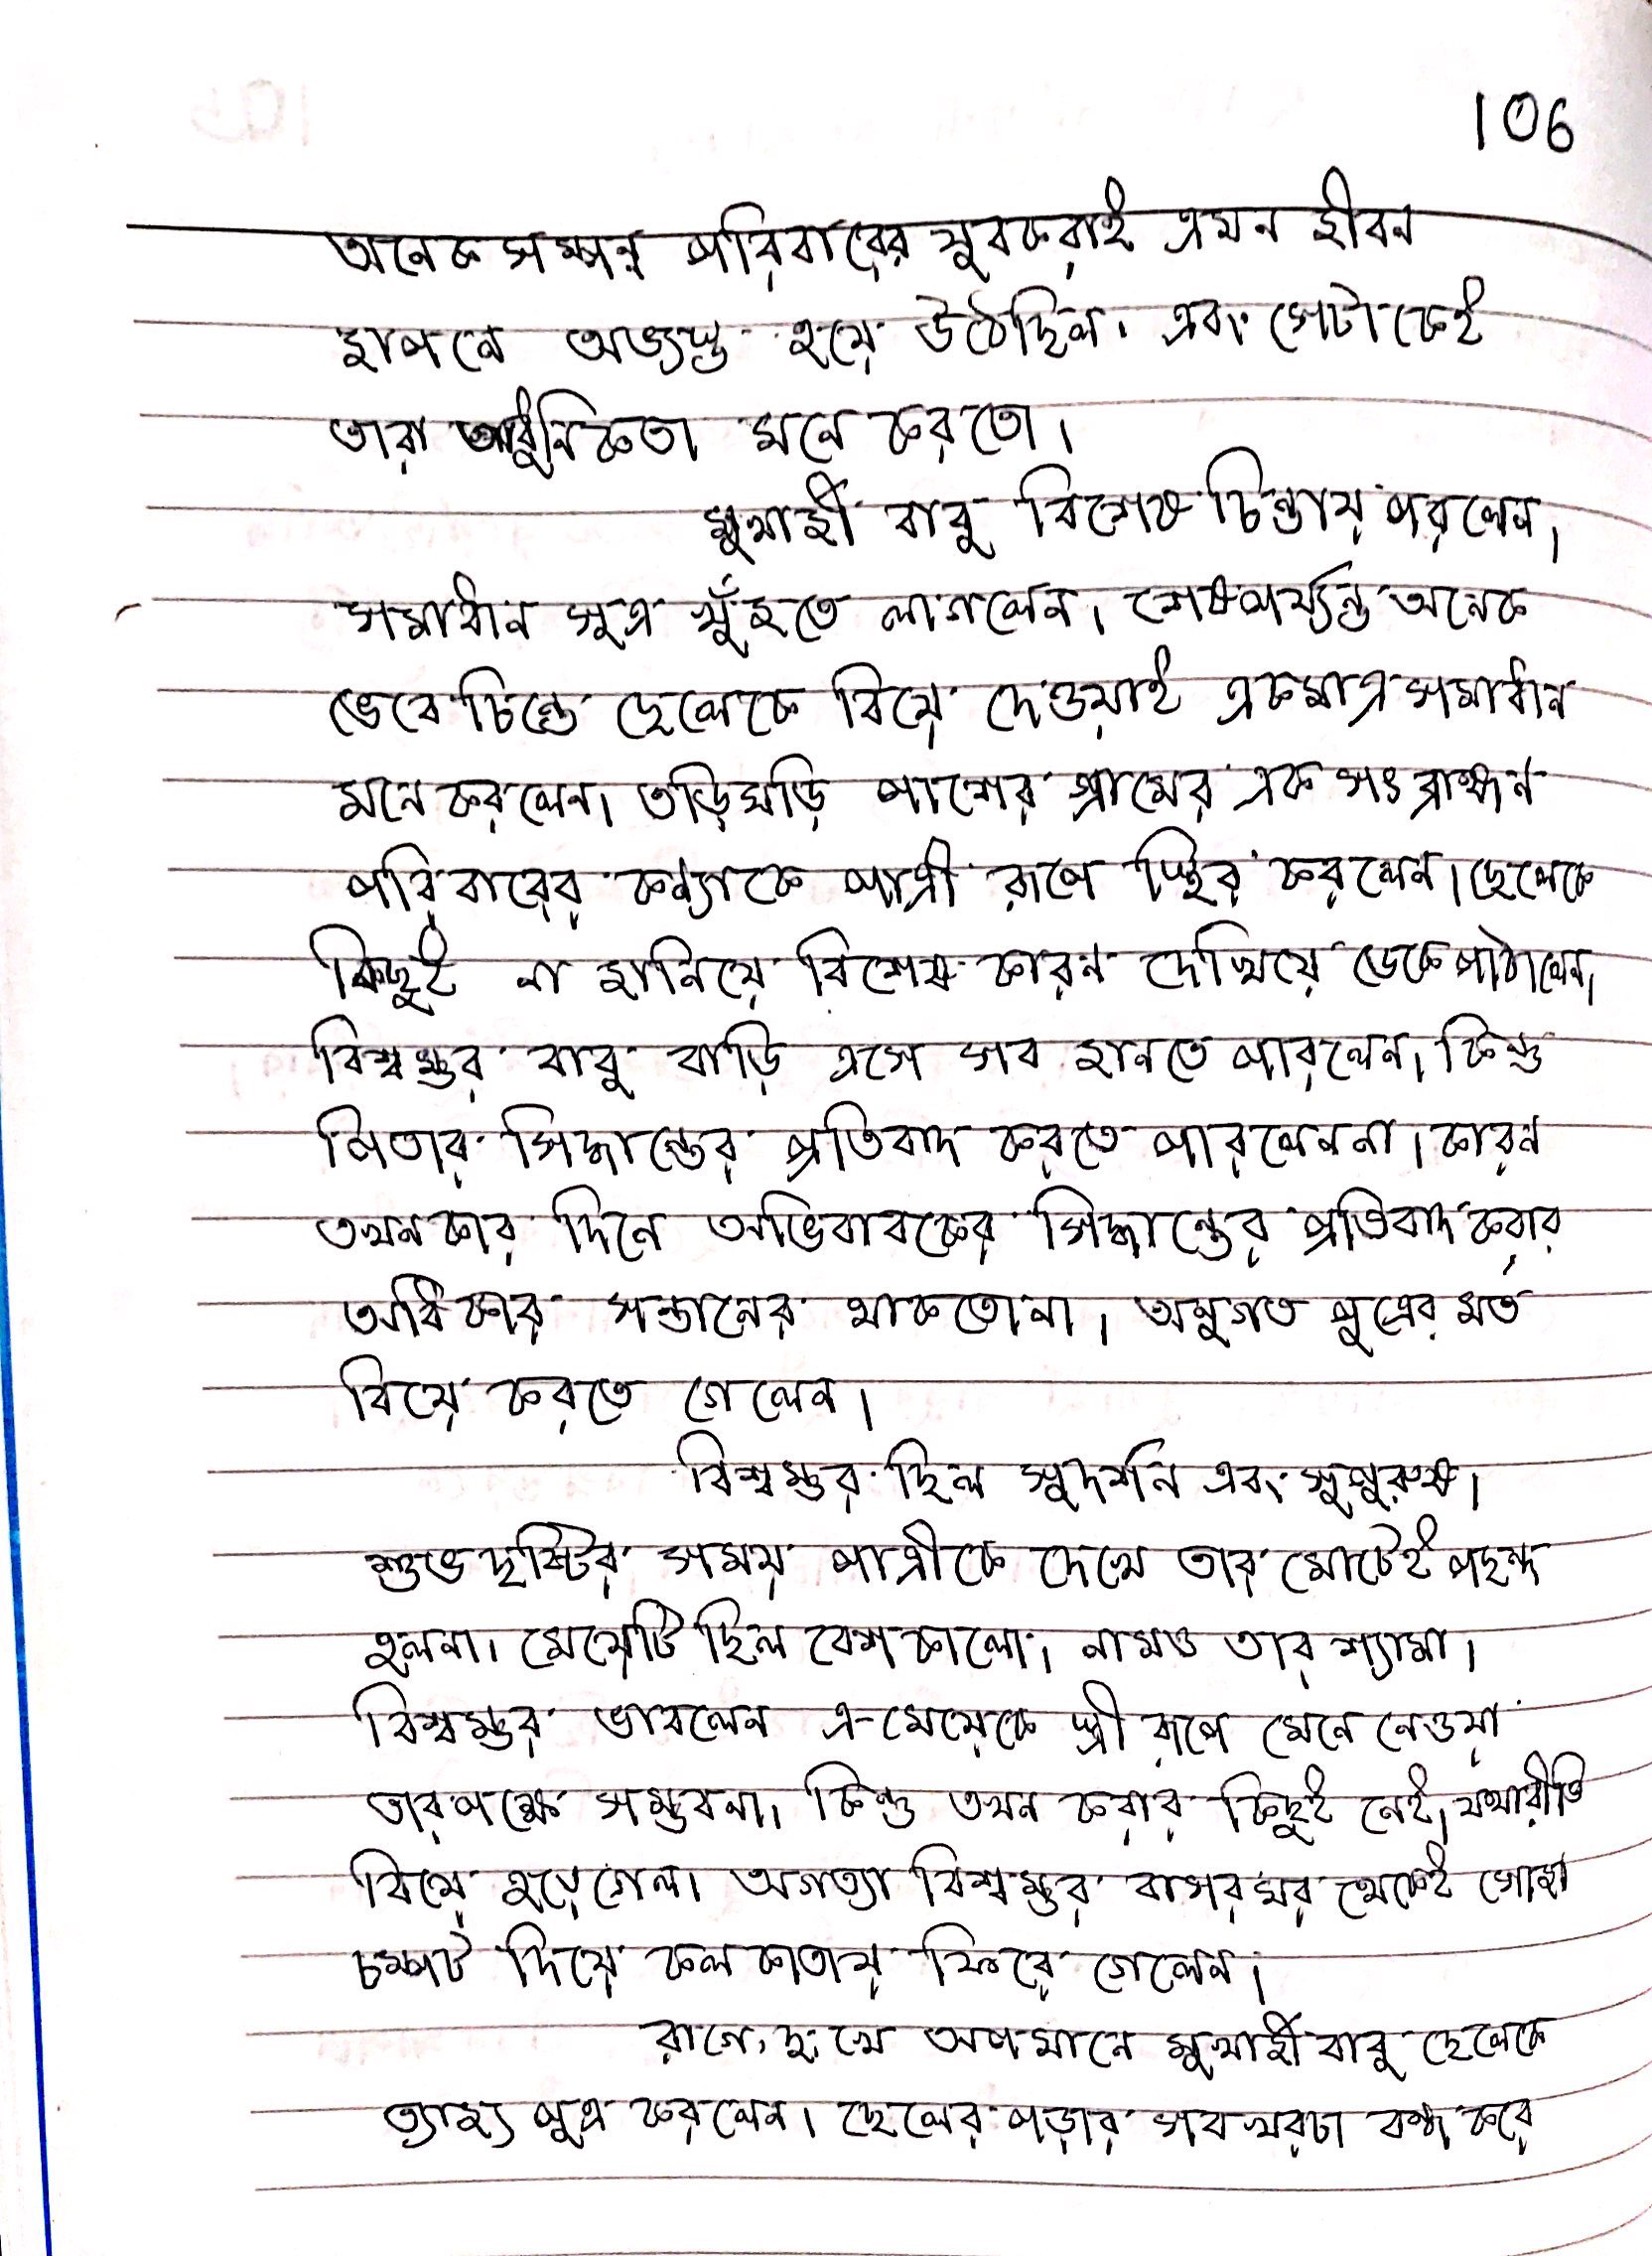 106
অনেক সম্পন্ন পরিবারের যুবকরাই এমন জীবন
যাপনে অভ্যস্ত হয়ে উঠেছিল। এবং সেটাকেই
তারা আধুনিকতা মনে করতো।
মুখার্জী বাবু বিশেষ চিন্তায় পরলেন।
সমাধান সুত্র খুঁজতে লাগলেন। শেষপর্য্যন্ত অনেক
ভেবে চিন্তে ছেলেকে বিয়ে দেওয়াই একমাত্র সমাধান
মনে করলেন। তড়িঘড়ি পাশের গ্রামের এক সৎ ব্রাহ্মন
পরিবারের কন্যাকে পাত্রী রূপে স্থির করলেন। ছেলেকে
কিছুই না জানিয়ে বিশেষ কারন দেখিয়ে ডেকে পাঠালেন।
বিশ্বম্ভর বাবু বাড়ি এসে সব জানতে পারলেন। কিন্তু
পিতার সিদ্ধান্তের প্রতিবাদ করতে পারলেননা। কারন
তখনকার দিনে অভিবাবকের সিদ্ধান্তের প্রতিবাদ করার
অধিকার সন্তানের থাকতোনা। অনুগত পুত্রের মত
বিয়ে করতে গেলেন।
বিশ্বম্ভর ছিল সুদর্শন এবং সুপুরুষ।
শুভদৃষ্টির সময় পাত্রীকে দেখে তার মোটেই পছন্দ
হলনা। মেয়েটি ছিল বেশ কালো। নামও তার শ্যামা।
বিশ্বম্ভর ভাবলেন এ-মেয়েকে স্ত্রী রূপে মেনে নেওয়া
তারপক্ষে সম্ভবনা। কিন্তু তখন করার কিছুই নেই। যথারীতি
বিয়ে হয়েগেল। অগত্যা বিশ্বম্ভর বাসরঘর থেকেই সোজা
চম্পট দিয়ে কলকাতায় ফিরে গেলেন।
রাগে, দুঃখে অপমানে মুখার্জী বাবু ছেলেকে
ত্যাজ্য পুত্র করলেন। ছেলের পড়ার সব খরচা বন্ধ করে